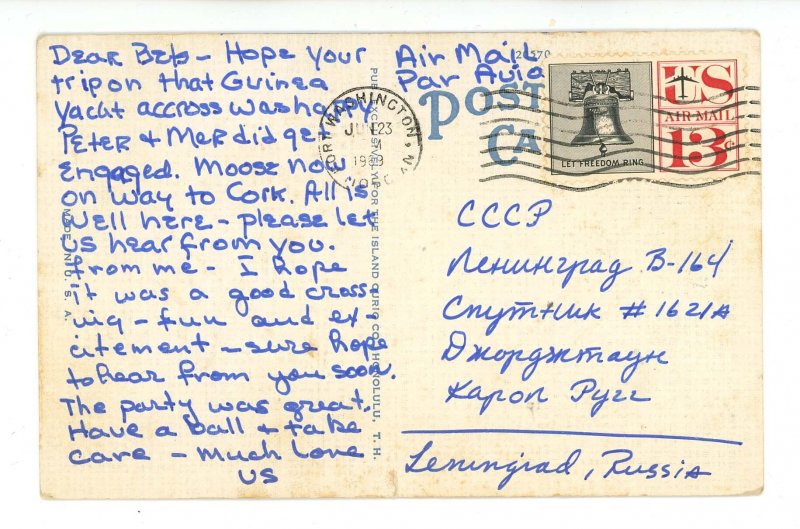 Dear Beb – Hope your
trip on that Guinea
Yacht accross was happy
Peter + Mer did get
engaged. Moose now
on way to Cork. All is
well here – please let
us hear from you.
from me – I hope
it was a good cross-
ing – fun and ex-
citement – sure hope
to hear from you soon.
The party was great.
Have a ball + take
care – Much Love
us
MADE IN U. S. A.
PUB. EXCLUSIVELY FOR THE ISLAND CURIO CO., HONOLULU, T. H.
Air Mail
Par Avion
POST
CA
PORT WASHINGTON, N.Y.
JUN 23
LET FREEDOM RING
US
AIR MAIL
13c
СССР
Ленинград В-164
Спутник # 1621А
Джорджтаун
Карол Русс
Leningrad, Russia